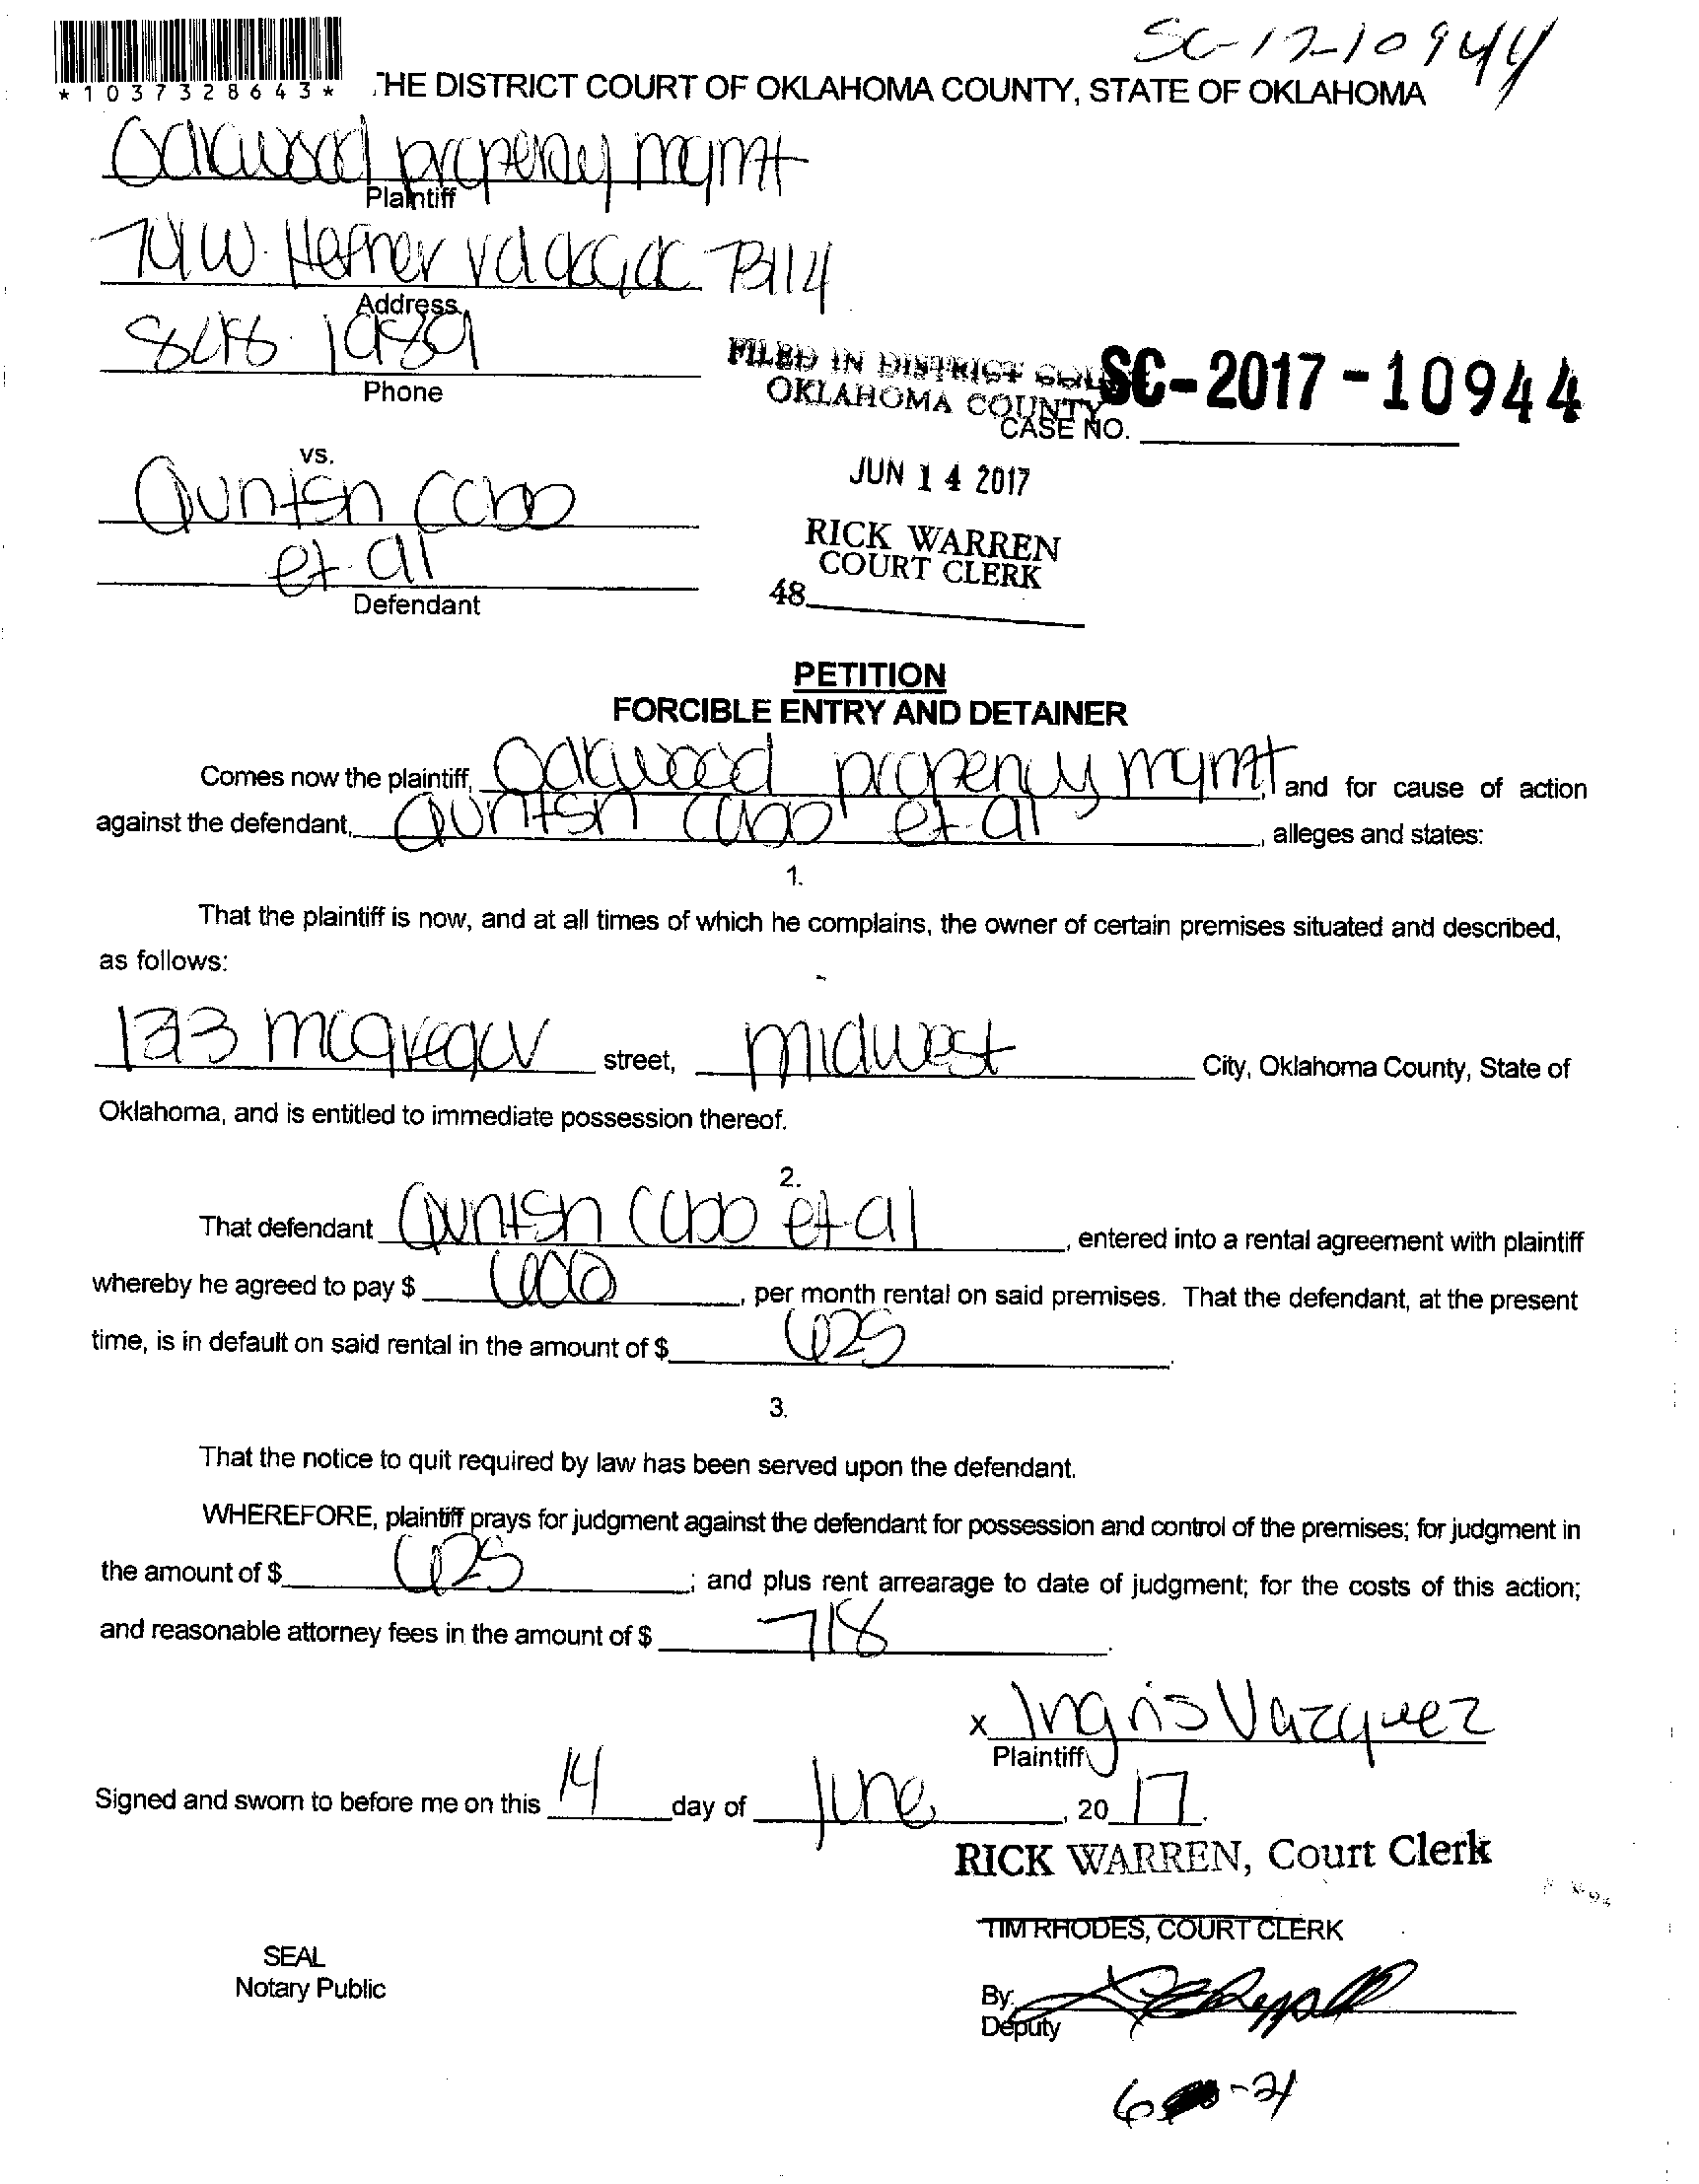 SC-17-10944
*1037328643*
THE DISTRICT COURT OF OKLAHOMA COUNTY, STATE OF OKLAHOMA
Oakwood property mgmt
Plaintiff
W. Hefner rd B114
Address
848 1989
Phone
FILED IN DISTRICT
OKLAHOMA COUNTY
SC-2017-10944
CASE NO.
vs.
JUN 14 2017
et al
RICK WARREN
COURT CLERK
Defendant
48
PETITION
FORCIBLE ENTRY AND DETAINER
Comes now the plaintiff, Oakwood property mgmt, and for cause of action
against the defendant, et al, alleges and states:
1.
That the plaintiff is now, and at all times of which he complains, the owner of certain premises situated and described,
as follows:
mcgregor street, midwest City, Oklahoma County, State of
Oklahoma, and is entitled to immediate possession thereof.
2.
That defendant et al, entered into a rental agreement with plaintiff
whereby he agreed to pay $ , per month rental on said premises. That the defendant, at the present
time, is in default on said rental in the amount of $ 625
3.
That the notice to quit required by law has been served upon the defendant.
WHEREFORE, plaintiff prays for judgment against the defendant for possession and control of the premises; for judgment in
the amount of $ 625; and plus rent arrearage to date of judgment; for the costs of this action;
and reasonable attorney fees in the amount of $ 718.
x Ingris Vazquez
Plaintiff
Signed and sworn to before me on this 14 day of June, 20 17.
RICK WARREN, Court Clerk
TIM RHODES, COURT CLERK
SEAL
Notary Public
By:
Deputy
6 -21